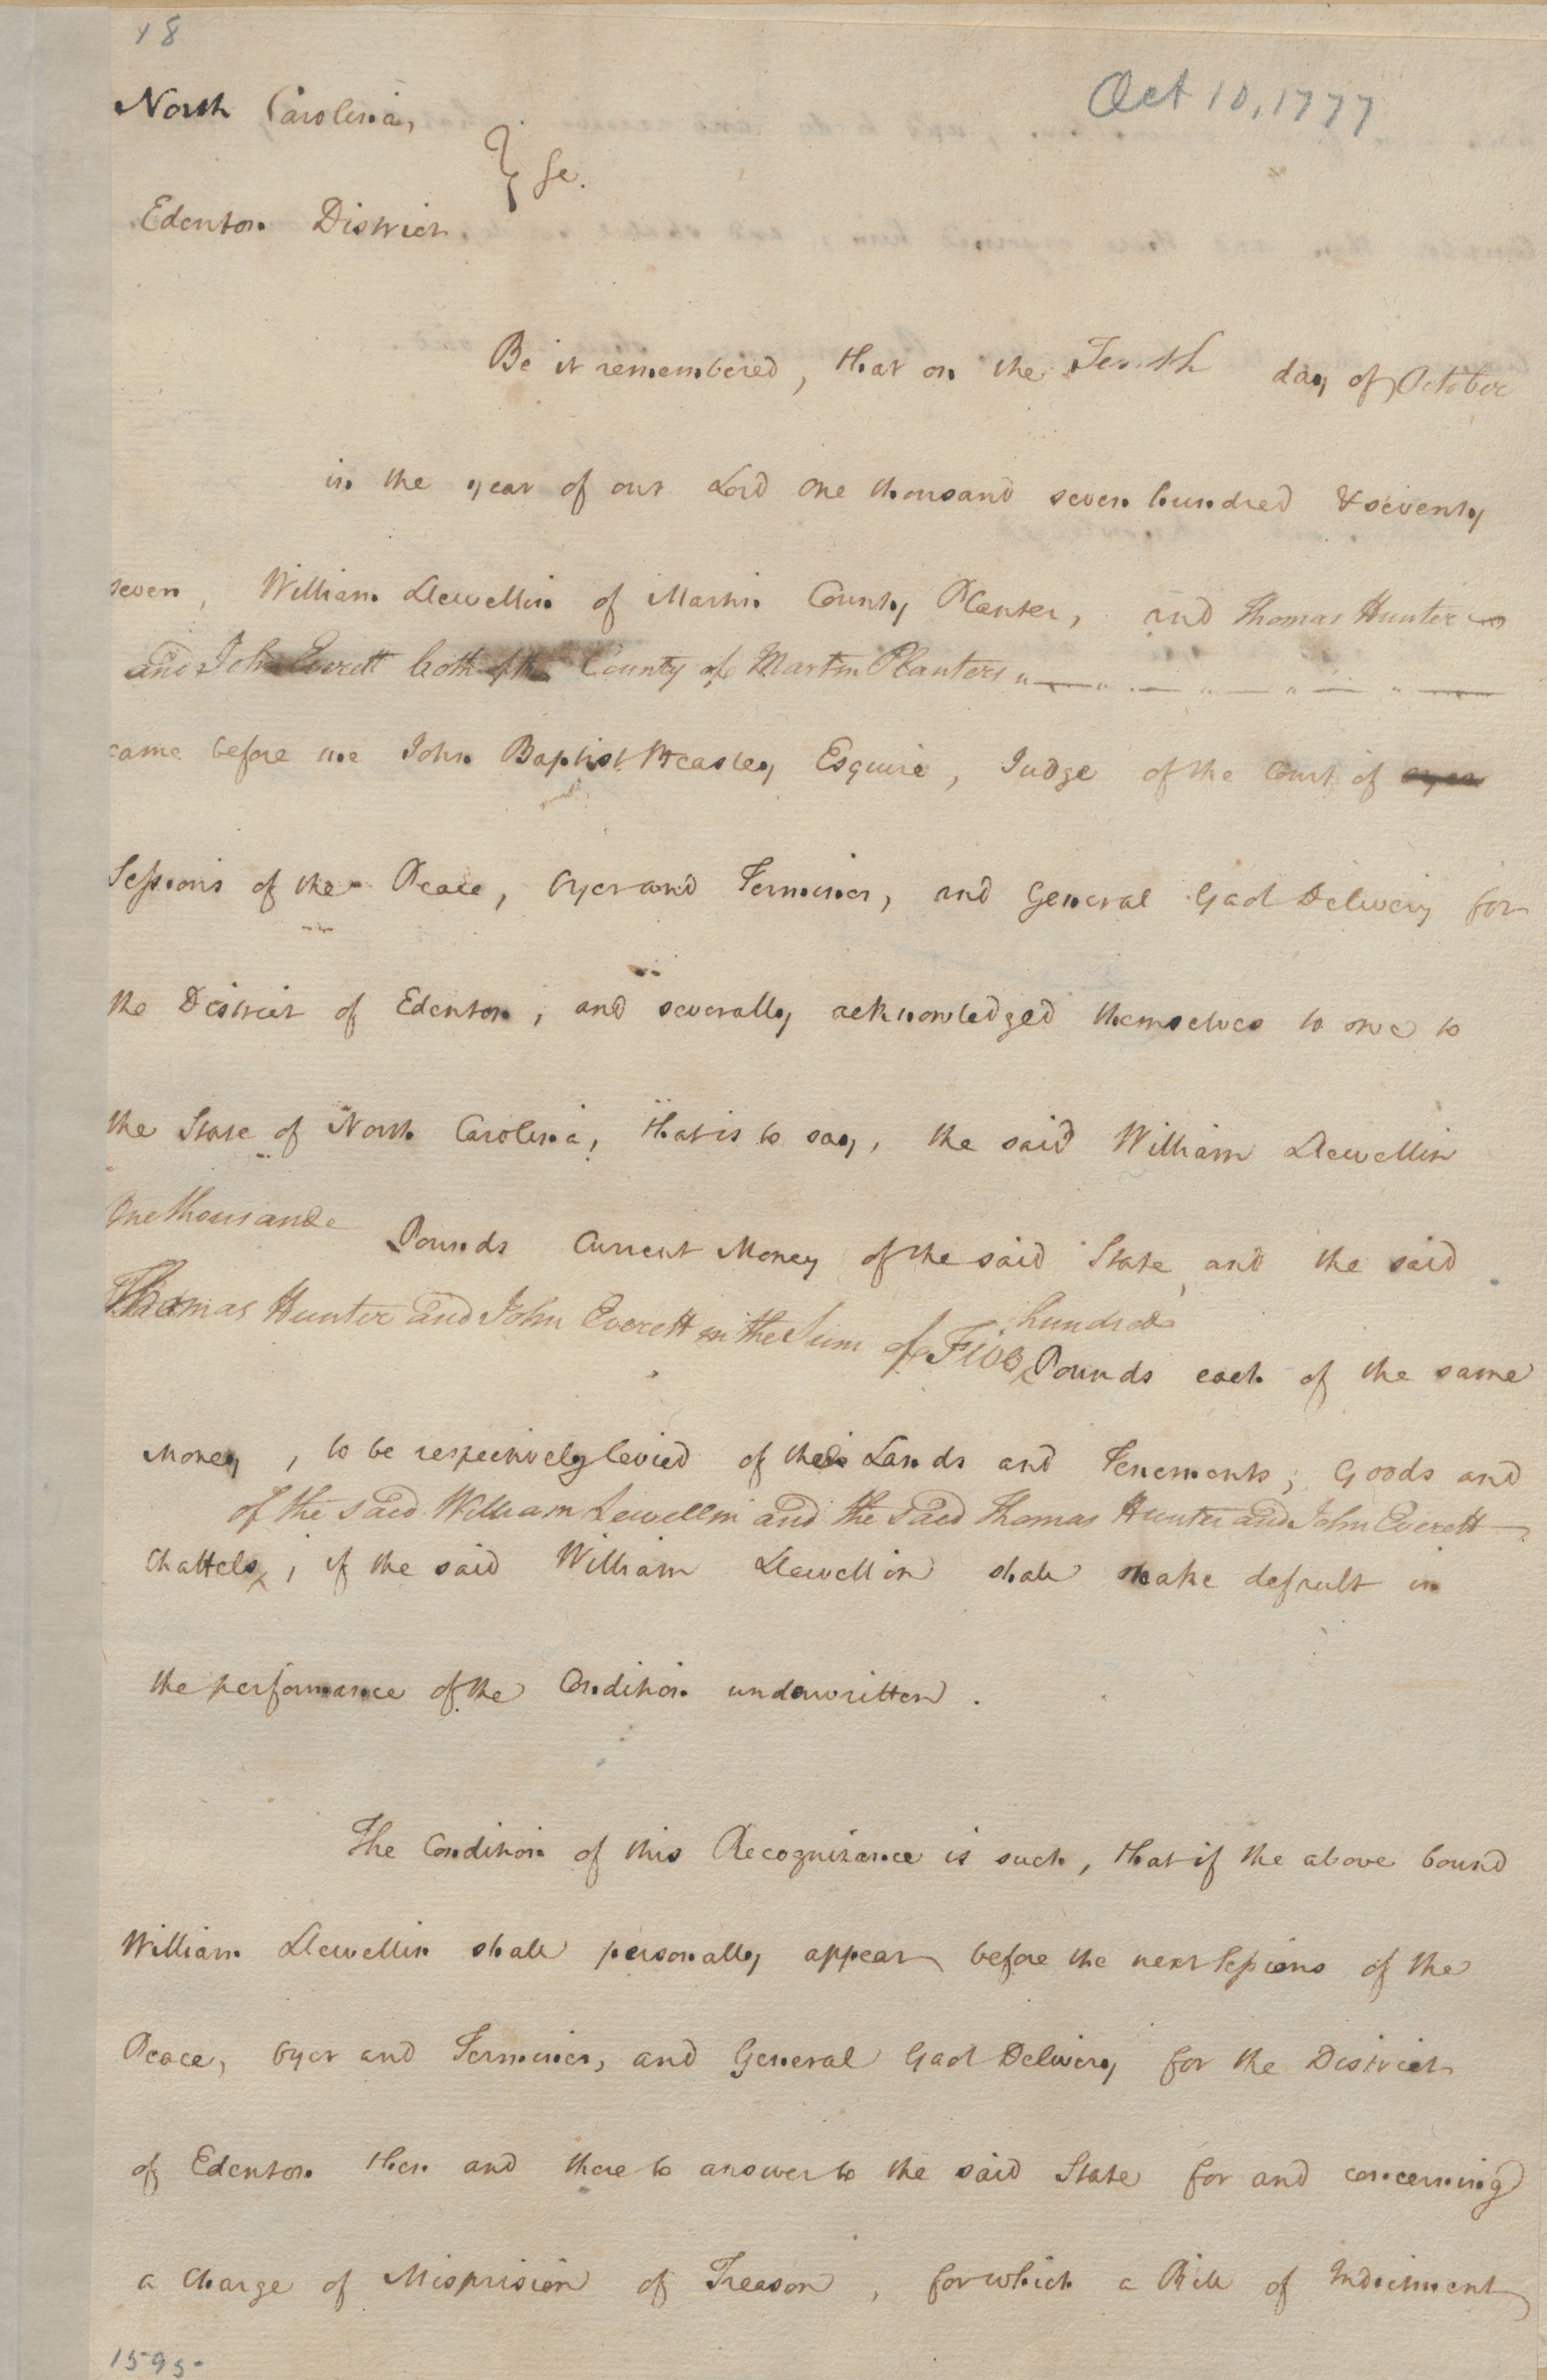 18
Oct 10, 1777
North Carolina,
} Sc.
Edenton District
Be it remembered, that on the Tenth day of October
in the year of our Lord One thousand seven hundred & seventy
seven, William Llewellin of Martin County Planter, and Thomas Hunter
and John Everett both of the County of Martin Planters
came before me John Baptist Beasley Esquire, Judge of the Court of oyer
Sessions of the Peace, Oyer and Terminer, and General Gaol Delivery for
the District of Edenton, and severally acknowledged themselves to owe to
the State of North Carolina, that is to say, the said William Llewellin
One thousand Pounds Current Money of the said State, and the said
hundred
Thomas Hunter and John Everett in the Sum of Five Pounds each of the same
Money, to be respectively levied of their Lands and Tenements, Goods and
of the said William Lewellin and the said Thomas Hunter and John Everett
Chattels ^, if the said William Llewellin shall make default in
the performance of the Condition underwritten.
The Condition of this Recognizance is such, that if the above bound
William Llewellin shall personally appear before the next Sessions of the
Peace, Oyer and Terminer, and General Gaol Delivery for the District
of Edenton then and there to answer to the said State for and concerning
a Charge of Misprision of Treason, for which a Bill of Indictment
1595-